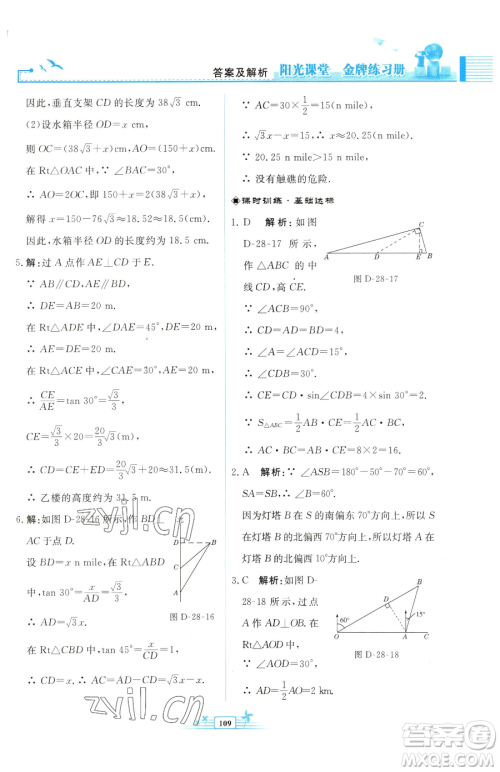 答案及解析 阳光课堂 金牌练习册
因此,垂直支架 CD 的长度为 38√3 cm.
(2)设水箱半径 OD=x cm,
则 OC=(38√3+x)cm,AO=(150+x)cm.
∵ Rt△OAC 中,∠BAC=30°,
∴ AO=2OC,即 150+x=2(38√3+x).
解得 x=150-76√3≈18.52≈18.5(cm).
∴ 水箱半径 OD 的长度约为 18.5 cm.
5.解:过 A 点作 AE⊥CD 于 E.
∵ AB∥CD,BD⊥CD,
∴ DE=AB=20 m.
在 Rt△ADE 中,∠DAE=45°,DE=20 m,
∴ AE=DE=20 m.
在 Rt△ACE 中,∠CAE=30°,
∴ CE/AE=tan 30°=√3/3,
CE=√3/3×20=20/3√3(m).
∴ CD=CE+DE=20/3√3+20≈31.5(m).
∴ 乙楼的高度约为 31.5 m.
6.解:如图 D-28-16 所示,作 BD⊥
AC 于点 D.
设 BD=x n mile,
在 Rt△ABD 中,
tan 30°=x/AD=√3/3,
∴ AD=√3x.
D
B
C
A
图 D-28-16
在 Rt△CBD 中,tan 45°=x/CD=1,
∴ CD=x.
∵ AC=30×1/2=15(n mile),
∴ √3x-x=15.
∵ 20.25 n mile>20 n mile,
∴ 没有触礁的危险.
课时训练·基础达标
1.D 解析:如图
D-28-17 所示,
作△ABC 的中线
CD,高 CE.
C
A
D
E
B
图 D-28-17
∵ ∠ACB=90°,
∴ CD=AD=DB=4.
∴ ∠A=∠ACD=15°.
∴ ∠CDB=30°.
∴ CE=CD·sin∠CDB=4×1/2=2.
∵ S△ABC=1/2AC·BC=1/2AB·CE,
∴ AC·BC=AB·CE=8×2=16.
2.A 解析:∵ ∠ASB=180°-50°-70°=60°,
SA=SB,
∴ ∠ABS=∠BAS=60°.
因为灯塔 B 在 S 的南偏东 70°方向上,所以 S 在
灯塔 B 的北偏西 70°方向上.所以灯塔 A 在灯
塔 B 的北偏西 10°方向上.
3.C 解析:如图 D-
28-18 所示,过点
A 作 AD⊥OB.在
Rt△AOD 中,
B
D
60°
15°
O
A
C
图 D-28-18
∵ ∠AOD=30°,OA=4 km,
∴ AD=1/2OA=2 km.
zyjl.cn
109